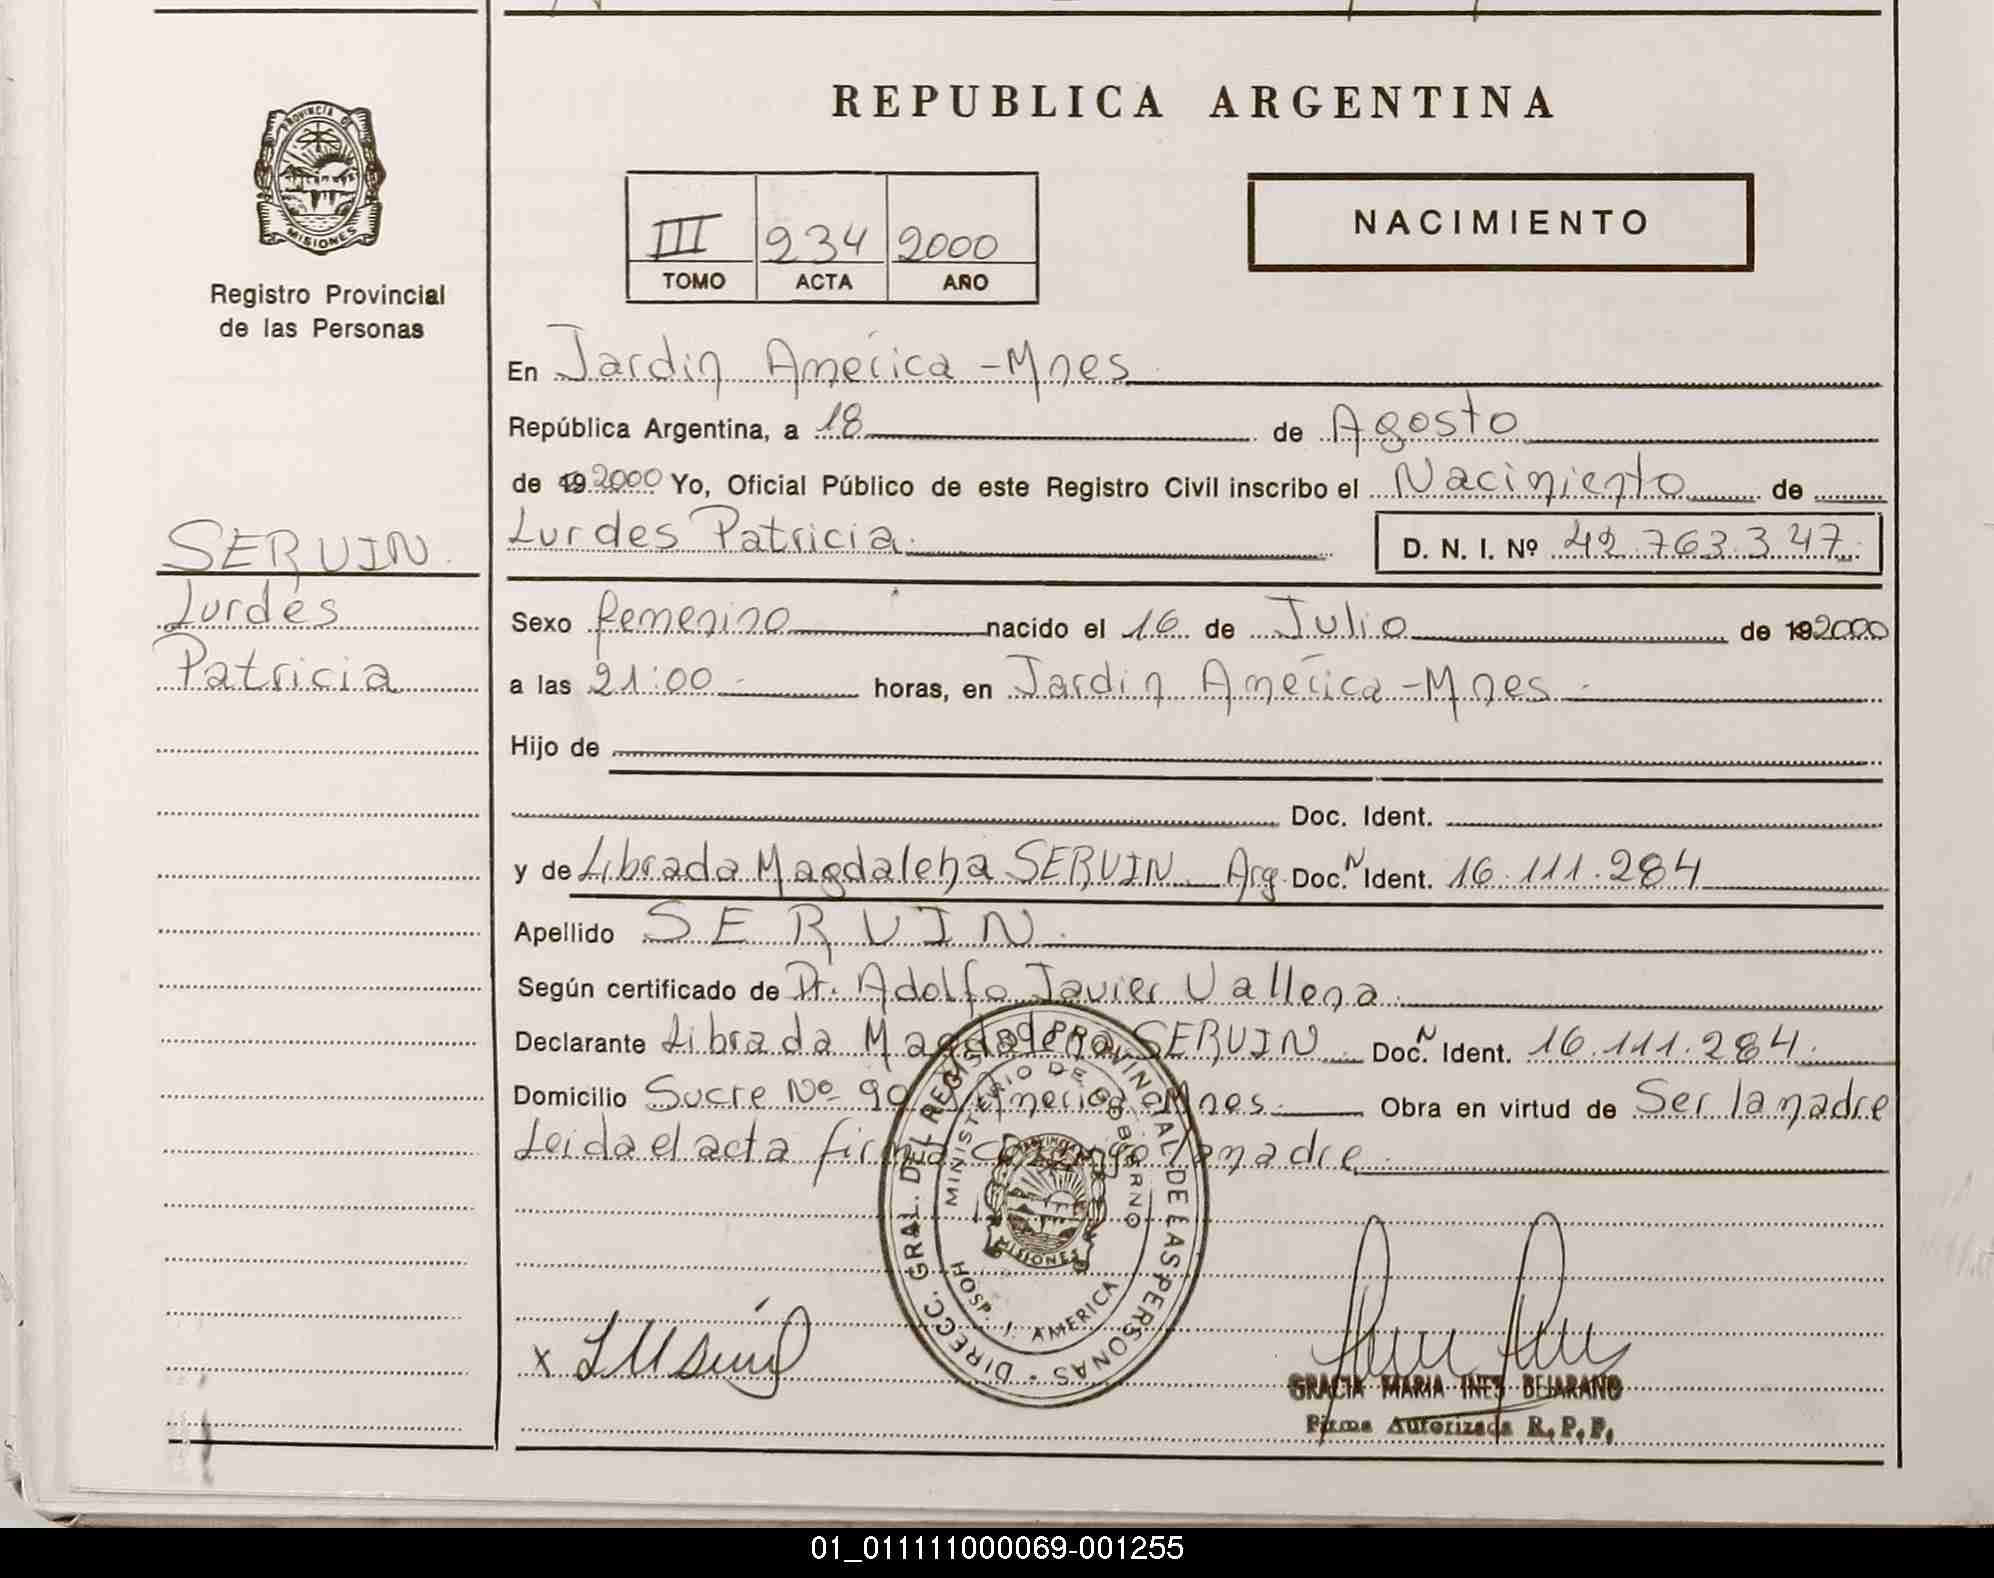 REPUBLICA ARGENTINA
PROVINCIA DE
MISIONES
Registro Provincial
de las Personas
III 234 2000
TOMO ACTA AÑO
NACIMIENTO
En Jardin América - Mnes
República Argentina, a 18 de Agosto
de 19 2000 Yo, Oficial Público de este Registro Civil inscribo el Nacimiento de
Lurdes Patricia. D. N. I. Nº 42.763.347.
SERVIN.
Lurdes
Patricia
Sexo femenino nacido el 16 de Julio de 19 2000
a las 21:00 horas, en Jardin América - Mnes -
Hijo de
Doc. Ident.
y de Librada Magdalena SERVIN Arg. Doc. N Ident. 16.111.284
Apellido SERVIN.
Según certificado de Dr. Adolfo Javier Vallena
Declarante Librada Magdalena SERVIN Doc. N Ident. 16.111.284.
Domicilio Sucre Nº 90 J. América Mnes. Obra en virtud de Ser la madre
Leida el acta firma conmigo la madre.
DIRECC. GRAL. DEL REGISTRO PROVINCIAL DE LAS PERSONAS
MINISTERIO DE GOBIERNO
PROVINCIA
MISIONES
HOSP. J. AMERICA
x
GRACIA MARIA INES BEJARANO
Firma Autorizada R.P.P.
01_011111000069-001255